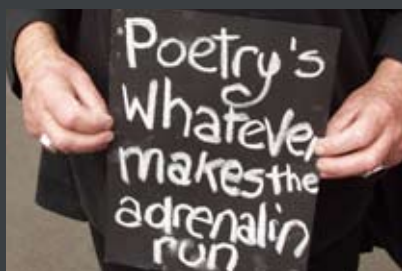 Poetry's
whatever
makes the
adrenalin
run